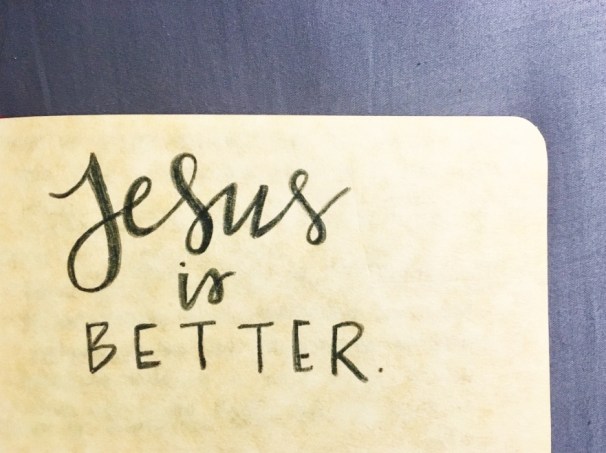 Jesus
is
BETTER.